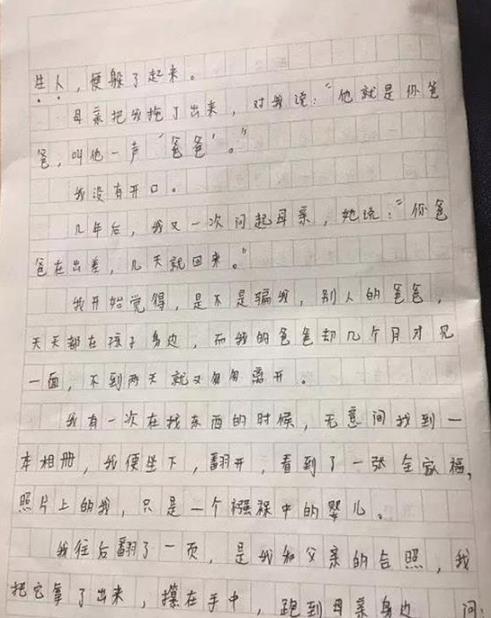 生人，便躲了起来。
母亲把我拖了出来，对我说：“他就是你爸
爸，叫他一声‘爸爸’。”
我没有开口。
几年后，我又一次问起母亲，她说：“你爸
爸在出差，几天就回来。”
我开始觉得，是不是骗我，别人的爸爸，
天天都在孩子身边，而我的爸爸却几个月才见
一面，不到两天就又匆匆离开。
我有一次在找东西的时候，无意间找到一
本相册，我便坐下，翻开，看到了一张全家福，
照片上的我，只是一个襁褓中的婴儿。
我往后翻了一页，是我和父亲的合照，我
把它拿了出来，攥在手中，跑到母亲身边 问：